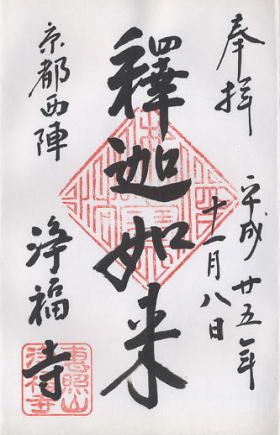 奉拝
平成廿五年
十一月八日
釋迦如来
京都西陣
浄福寺
恵照山
浄福寺